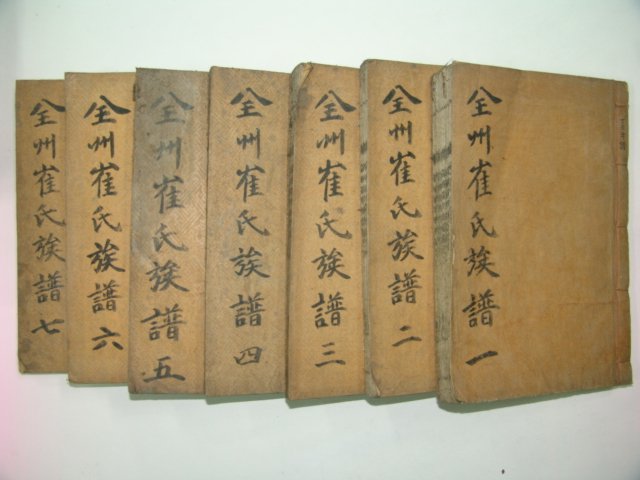 全州崔氏族譜一
全州崔氏族譜二
全州崔氏族譜三
全州崔氏族譜四
全州崔氏族譜五
全州崔氏族譜六
全州崔氏族譜七